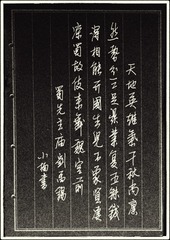 天地英雄氣千秋尚凜
然勢分三足鼎業復五銖錢
得相能開國生兒不象賢凄
涼蜀故伎來舞魏宮前
蜀先主廟 劉禹錫
小書